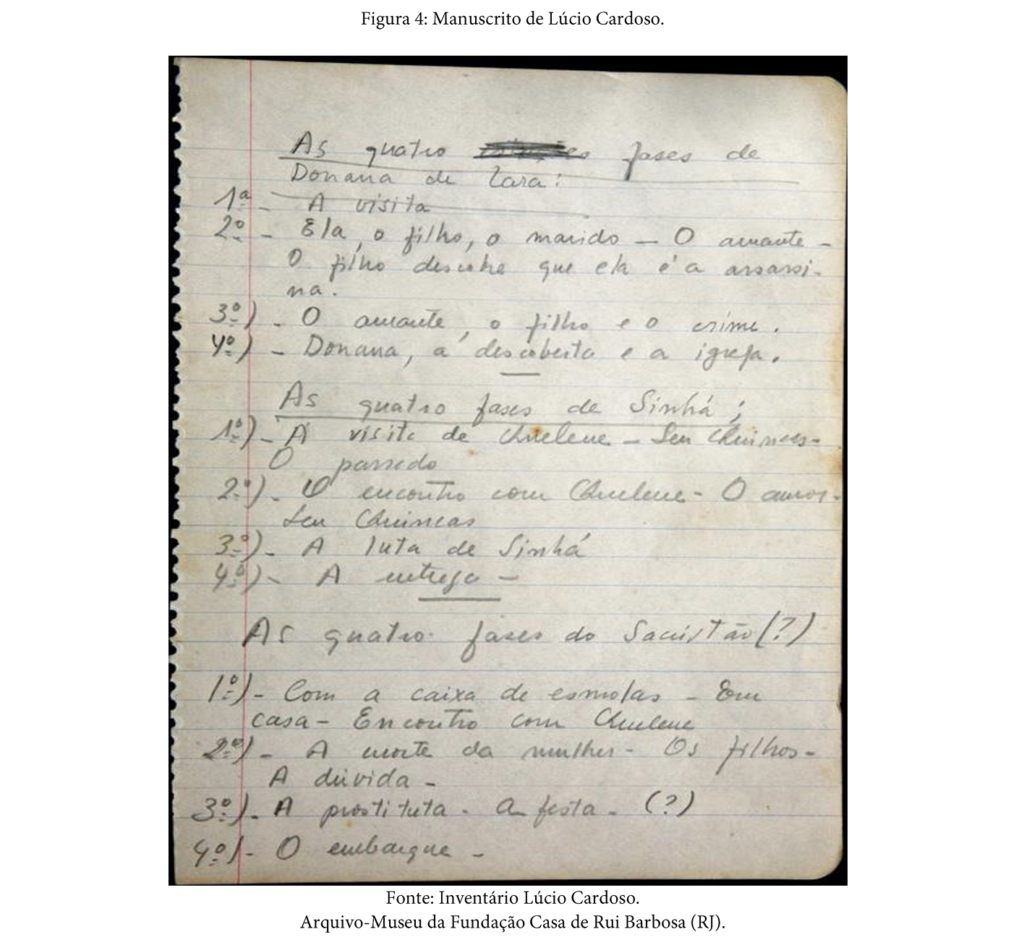 Figura 4: Manuscrito de Lúcio Cardoso.
As quatro fases de
Donana de Lara:
1ª - A visita
2º - Ela, o filho, o marido - O amante -
O filho descobre que ela é a assassi-
na.
3º) - O amante, o filho e o crime.
4º) - Donana, a descoberta e a igreja.
As quatro fases de Sinhá;
1º) - A visita de Chuelene - Seu Chuincas -
O passado
2º) - O encontro com Chuelene - O amor -
Seu Chuincas
3º) - A luta de Sinhá
4º) - A entrega -
As quatro fases do Sacristão (?)
1º) - Com a caixa de esmolas - Em
casa - Encontro com Chuelene
2º) - A morte da mulher - Os filhos -
A dúvida -
3º) - A prostituta - A festa - (?)
4º) - O embarque -
Fonte: Inventário Lúcio Cardoso.
Arquivo-Museu da Fundação Casa de Rui Barbosa (RJ).